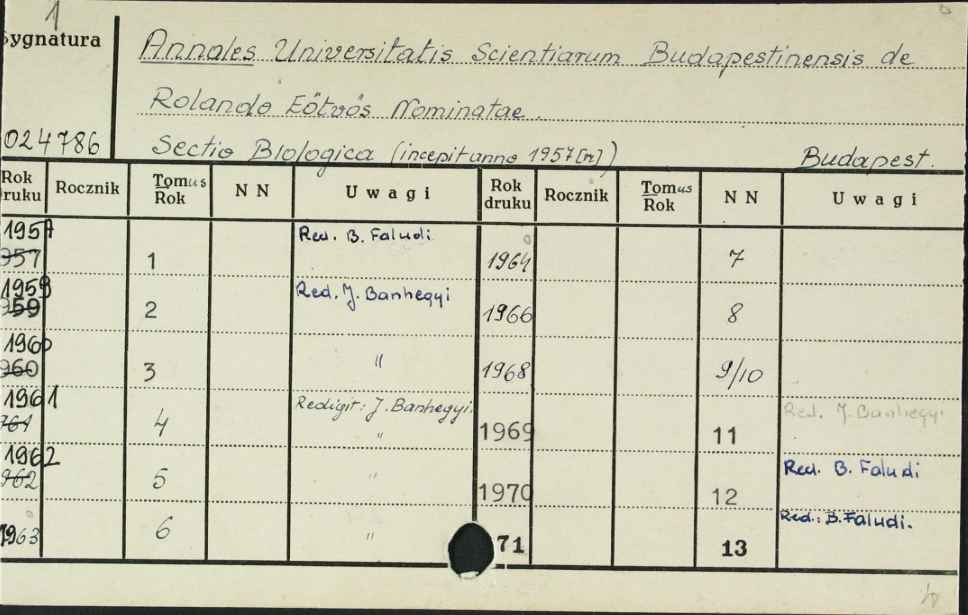 1
Sygnatura
024786
Annales Universitatis Scientiarum Budapestinensis de
Rolando Eötvös Nominatae.
Sectio Biologica (incepit anno 1957[m]) Budapest.
Rok druku Rocznik Tomus Rok N N Uwagi Rok druku Rocznik Tomus Rok N N Uwagi
1957 Red. B. Faludi
957 1 1964 7
1959 Red. J. Banhegyi
959 2 1966 8
1960
960 3 " 1968 9/10
1961 Redigit: J. Banhegyi. Red. J. Banhegyi
961 4 " 1969 11
1962 Red. B. Faludi
962 5 " 1970 12
Red.: B. Faludi.
1963 6 " 71 13